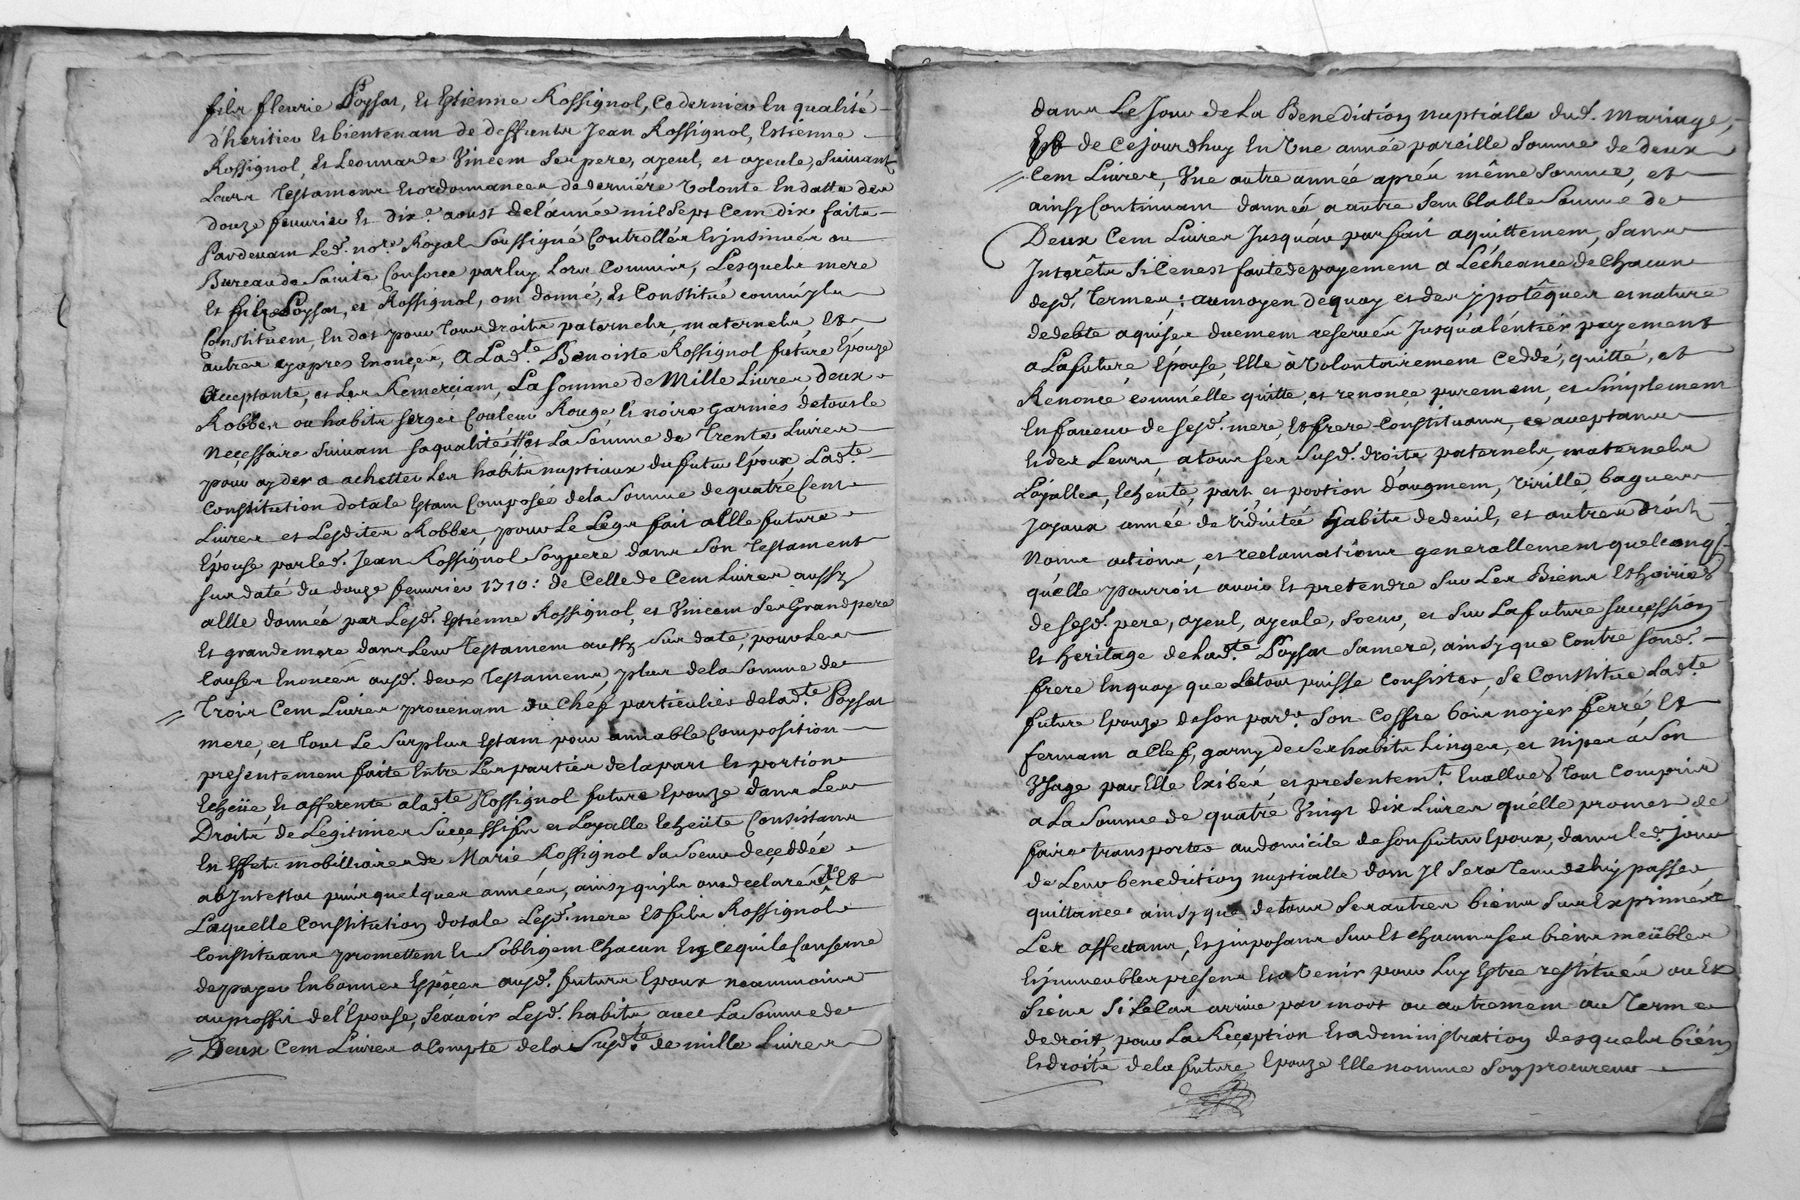 fils fleurie Poysat, et Estienne Rossignol, Ce dernier En qualité
d'heritier et bientenant de deffunts Jean Rossignol, Estienne
Rossignol, et Leonnarde Vincent Ses pere, ayeul, et ayeule, Suivant
Leurs Testaments et ordonnances de derniére volonté En datte des
douze fevvrier et dix.e aoust de l'année mil Sept Cent dix faits
Pardevant Led. no.re Royal Soussigné Controllés et jnsinués au
Bureau de Sainte Consorce par luy Lors Commis, Lesquels mere
et fils Poysat, et Rossignol, ont donné, et Constitué comme jls
Constituent, En dot pour tous droits paternels, maternels, et
autres cyapres Enoncés, a Lad.te Benoiste Rossignol future Epouze
acceptante, et Les Remerciant, La Somme de Mille Livres deux
Robbes ou habits Serges Couleur Rouge et noire garnies de tout le
necessaire Suivant Sa qualité, et La Somme de Trente Livres
pour ayder a achetter Les habits nuptiaux du futur Epoux, Lad.te
Constitution dotale Estant Composée de la Somme de quatre Cent
Livres et Lesdites Robbes, pour Le Legs fait a Elle future
Epouse par led. Jean Rossignol Son pere dans Son Testament
Sus daté du douze fevvrier 1710: de Celle de Cent Livres aussy
a Elle donnée par Lesd. Estienne Rossignol, et Vincent Ses Grand pere
et grande mere dans Leur Testament aussy Sus daté, pour Les
Causes Enoncées ausd. deux Testaments, plus de la Somme de
Trois Cent Livres provenant du Chef particulier de lad.te Poysat
mere, et Tout Le Surplus Estant pour amiable Composition
presentement faite Entre Les parties de la part et portion
Echeüe, et afferente a lad.te Rossignol future Epouze dans Les
Droits de Legitimes Successifs et Loyalle Echeüte Consistants
En Effets mobilliaires de Marie Rossignol Sa Soeur decedée
ab Intestat puis quelques années, ainsy qu'jls ont declaré, Et
Laquelle Constitution dotale Lesd. mere et fils Rossignol
Constituants promettent et S'obligent Chacun En Ce qui le Conserne
de payer En bonnes Espéces ausd. futurs Epoux neanmoins
au proffit de l'Epouse, Sçavoir Lesd. habits avec La Somme de
Deux Cent Livres a Compte de la Susd.te de mille Livres
dans Le Jour de La Benediction nuptialle dud. Mariage,
Et de Cejourdhuy En Une année pareille Somme de deux
Cent Livres, Une autre année aprés même Somme, et
ainsy Continuant d'année a autre Semblable Somme de
Deux Cent Livres Jusqu'au parfait aquittement, Sans
Intérêts Si Ce n'est faute de payement a L'écheance de Chacun
desd. Termes: au moyen de quoy et des jpotêques et nature
de debte aquises duement reservés Jusqu'a l'éntiér payement
a La future Epouse, Elle à Volontairement Ceddé, quitté, et
Renoncé comme Elle quitte, et renonce purement, et Simplement
En faveur de Sesd. mere, Et frere Constituants, ce aceptants
et des Leurs, a tous Ses Susd. droits paternels, maternels
Loyalles, Echeute, part, et portion d'augment, Virille, bagues
Joyaux année de Viduitée habits de deuil, et autres droits
Noms actions, et reclamations generallement quelconqs
qu'elle pourroit avoir et pretendre Sur Les Biens et hoiries
de Sesd. pere, ayeul, ayeule, Soeur, et Sur La future Succession
et heritage de Lad.te Poysat Sa mere, ainsy que Contre Sond.
frere En quoy que Le tout puisse Consister, Se Constitue Lad.te
future Epouze de Son part. Son Coffre bois noyer ferré Et
fermant a Clef, garny de Ses habits Linges, et nipes à Son
Usage par Elle Exibés, et presentem.t Evallués Tout Compris
a La Somme de quatre Vingt dix Livres qu'elle promet de
faire transporter au domicile de Son futur Epoux, dans le d. jour
de Leur benediction nuptialle dont Jl Sera Tenu de luy passer
quittance ainsy que de tous Ses autres biens Sus Exprimés
Les affectant, et jmposant Sur Et chacuns Ses biens meübles
Et jmmeubles presents Et a Venir pour Luy Estre restitués ou Ex
Siens Si Le Cas arrive par mort ou autrement au Terme
de droit, pour La Reception Et administration desquels biéns
Et droits de la future Epouze Elle nomme Son procureur